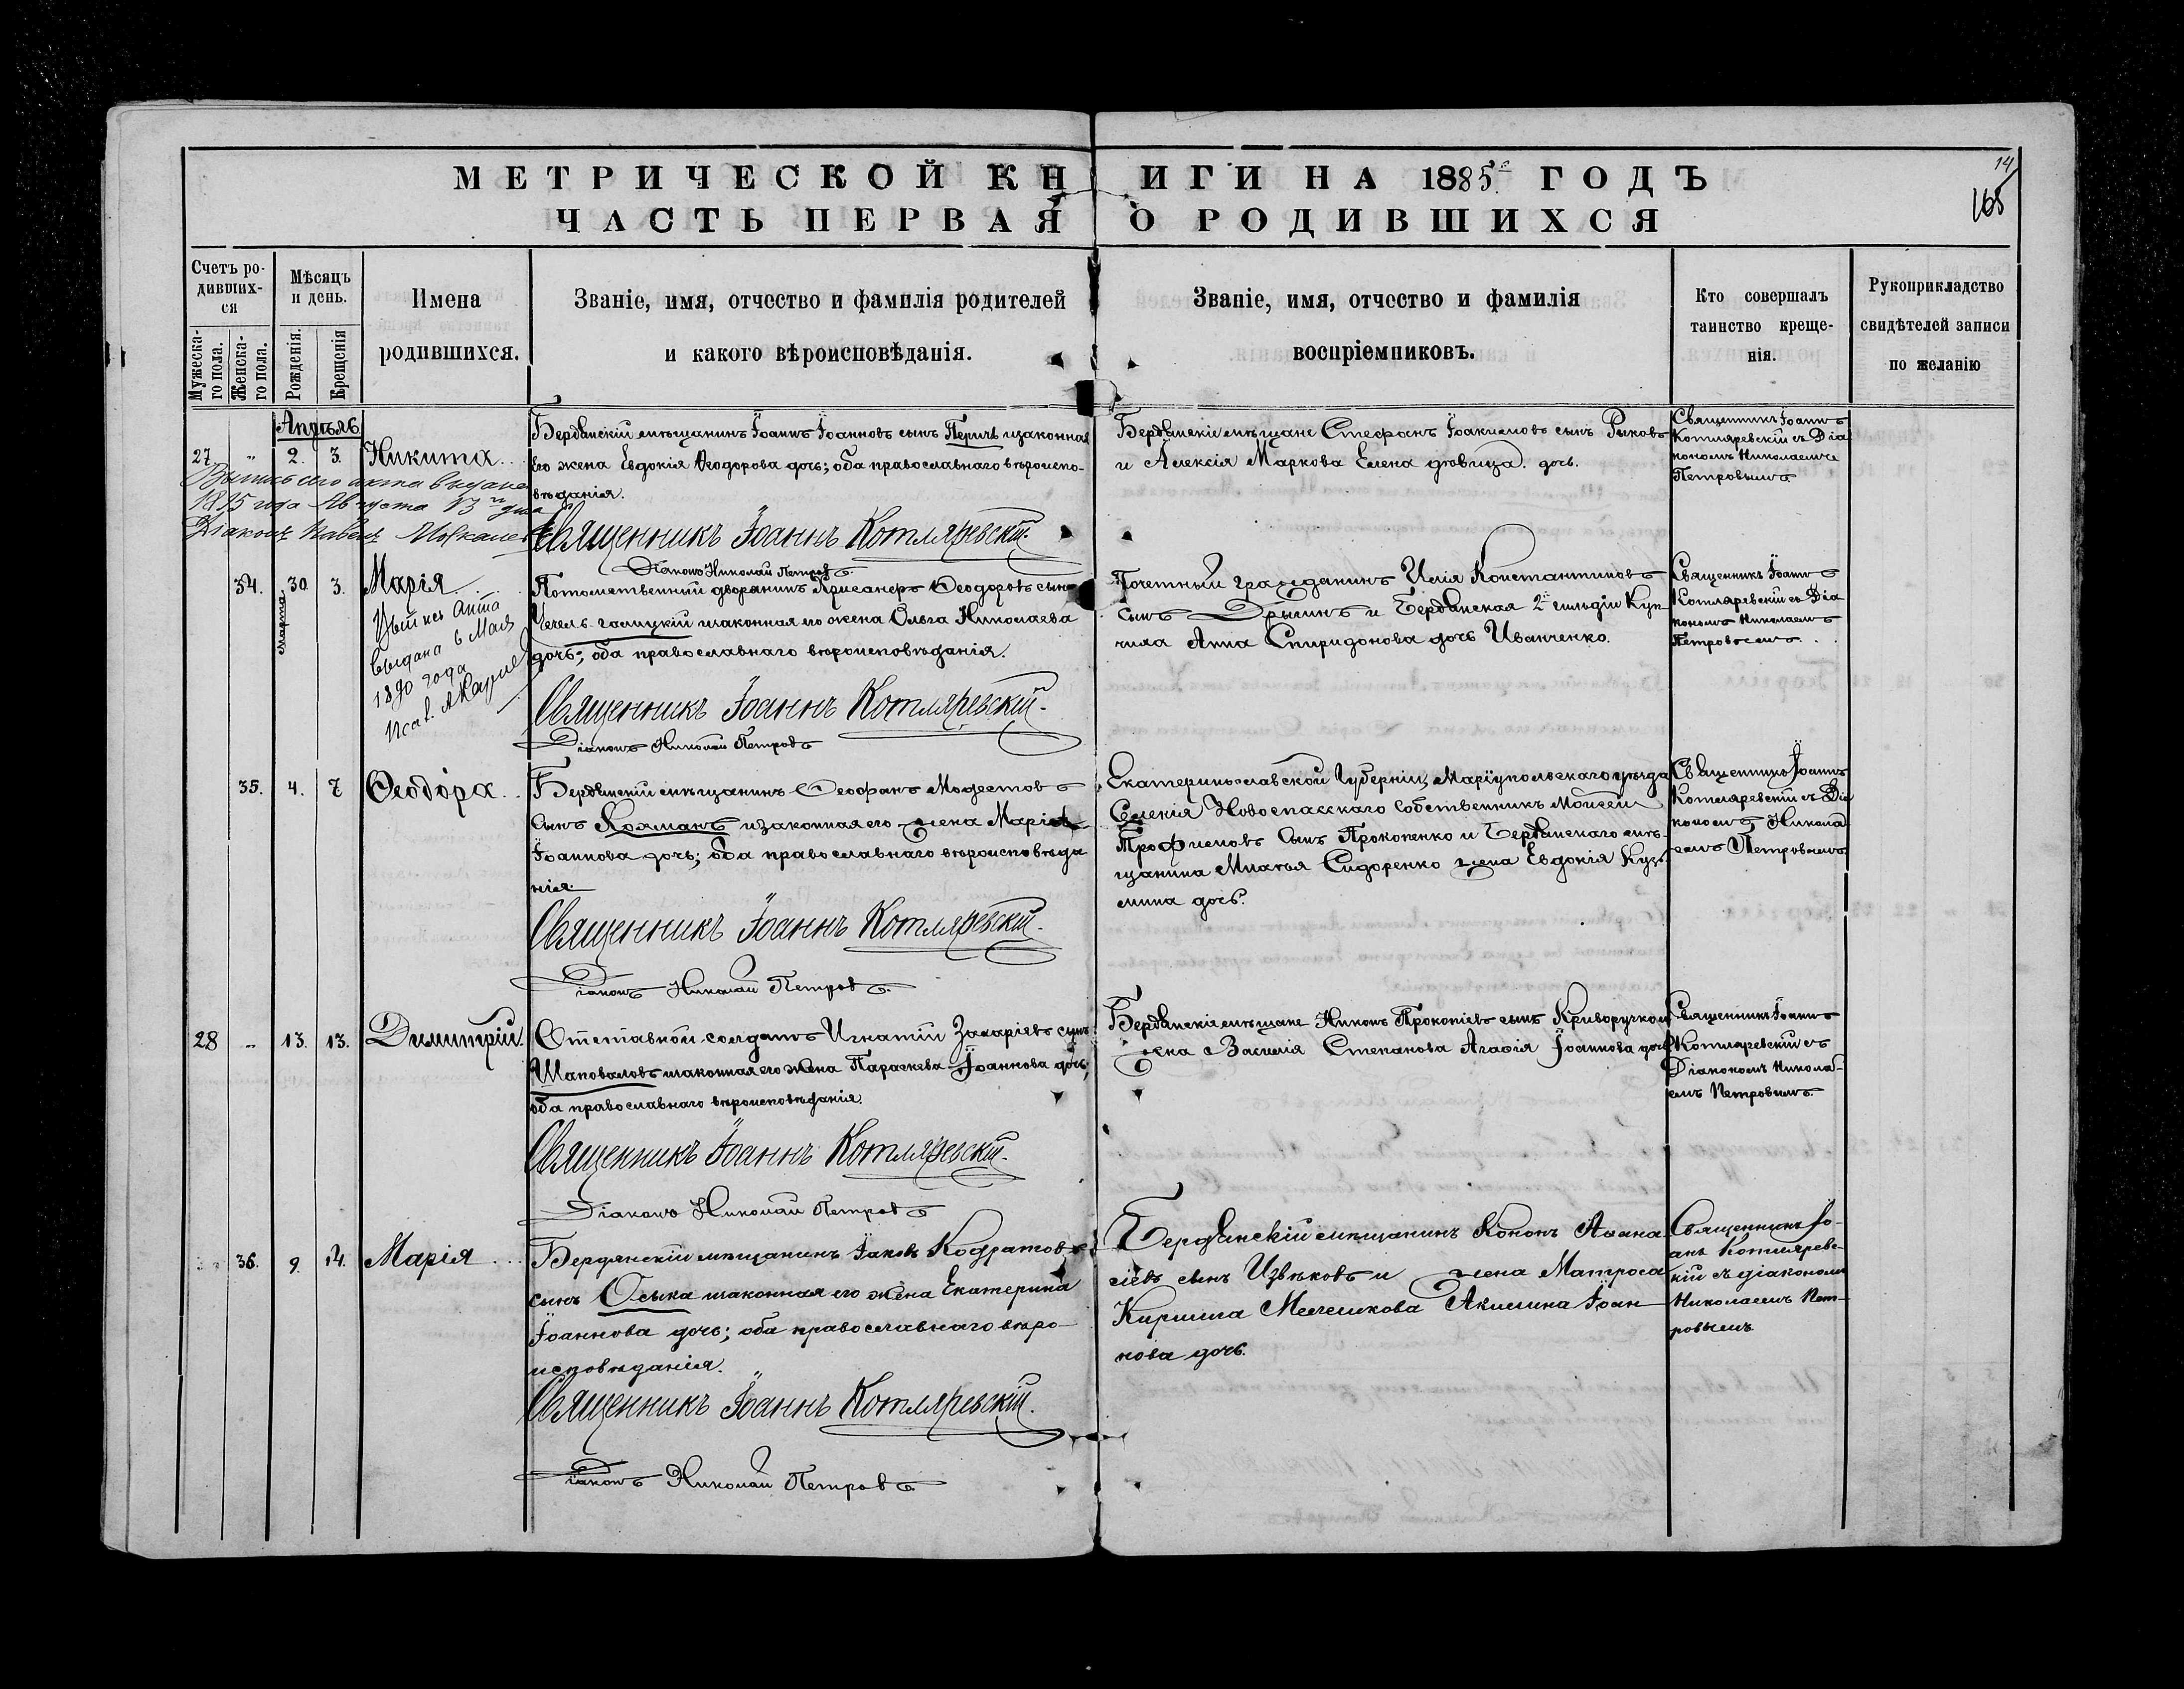 МЕТРИЧЕСКОЙ КНИГИ НА 1885 ГОДЪ
14
168
ЧАСТЬ ПЕРВАЯ О РОДИВШИХСЯ
Счетъ ро-
дивших-
ся
Мужеска-
го пола.
Женска-
го пола.
Мѣсяцъ
и день.
Рожденія.
Крещенія
Имена
родившихся.
Званіе, имя, отчество и фамилія родителей
и какого вѣроисповѣданія.
Званіе, имя, отчество и фамилія
воспріемниковъ.
Кто совершалъ
таинство креще-
нія.
Рукоприкладство
свидѣтелей записи
по желанію
Апрѣль
27 " 2. 3. Никита
Бердянскій мѣщанинъ Іоаннъ Іоанновъ сынъ и законная
его жена Евдокія Ѳеодорова дочь; оба православнаго вѣроиспо-
вѣданія.
Священникъ Іоаннъ Котляревскій.
Діаконъ Николай Петровъ
Бердянскіе мѣщане Стефанъ Іоакимовъ сынъ Рыковъ
и Алексія Маркова Елена дѣвица. дочь.
Священникъ Іоаннъ
Котляревскій съ Діа
кономъ Николаемъ
Петровымъ
сего акта выдана
года Августа 13 дня
Діаконъ Павелъ
34. 30. 3. Марія
Марта
акта
выдана 6 Мая
1890 года
Потомственный дворянинъ Ѳеодоровъ сынъ
законная его жена Ольга Николаева
дочь; оба православнаго вѣроисповѣданія.
Священникъ Іоаннъ Котляревскій.
Діаконъ Николай Петровъ
Почетный гражданинъ Илія Константиновъ
сынъ и Бердянская 2й гильдіи Куп
чиха Анна Спиридонова дочь Иванченко.
Священникъ Іоаннъ
Котляревскій съ Діа
кономъ Николаемъ
Петровымъ
35. 4. 7 Ѳеодора
Бердянскій мѣщанинъ Ѳеофанъ Модестовъ
сынъ Коломанъ и законная его жена Марія
Іоаннова дочь; оба православнаго вѣроисповѣда
нія.
Священникъ Іоаннъ Котляревскій.
Діаконъ Николай Петровъ
Екатеринославской Губерніи, Маріупольскаго уѣзда
Селенія Новоспасскаго собственникъ Моисей
Трофимовъ сынъ Прокопенко и Бердянскаго мѣ-
щанина Сидоренко жена Евдокія Кузь
мина дочь.
Священникъ Іоаннъ
Котляревскій съ Діа
кономъ Никола
емъ Петровымъ
28 " 13. 13. Димитрій.
Отставной солдатъ Игнатій Захаріевъ сынъ
Шаповаловъ и законная его жена Параскева Іоаннова дочь,
оба православнаго вѣроисповѣданія.
Священникъ Іоаннъ Котляревскій.
Діаконъ Николай Петровъ
Бердянскіе мѣщане Никонъ Прокопіевъ сынъ Криворучко и
жена Василія Степанова Агафія Іоаннова дочь
Священникъ Іоаннъ
Котляревскій съ
Діакономъ Никола-
емъ Петровымъ
36. 9. 14. Марія
Бердянскій мѣщанинъ Іаковъ Кодратовъ
сынъ Оська и законная его жена Екатерина
Іоаннова дочь; оба православнаго вѣро-
исповѣданія.
Священникъ Іоаннъ Котляревскій.
Діаконъ Николай Петровъ
Бердянскій мѣщанинъ Кононъ Аѳана
сіевъ сынъ Извѣковъ и жена Матроса
Кирилла Акилина Іоан
нова дочь.
Священникъ Іо-
аннъ Котляревс-
кій съ діакономъ
Николаемъ Пет-
ровымъ